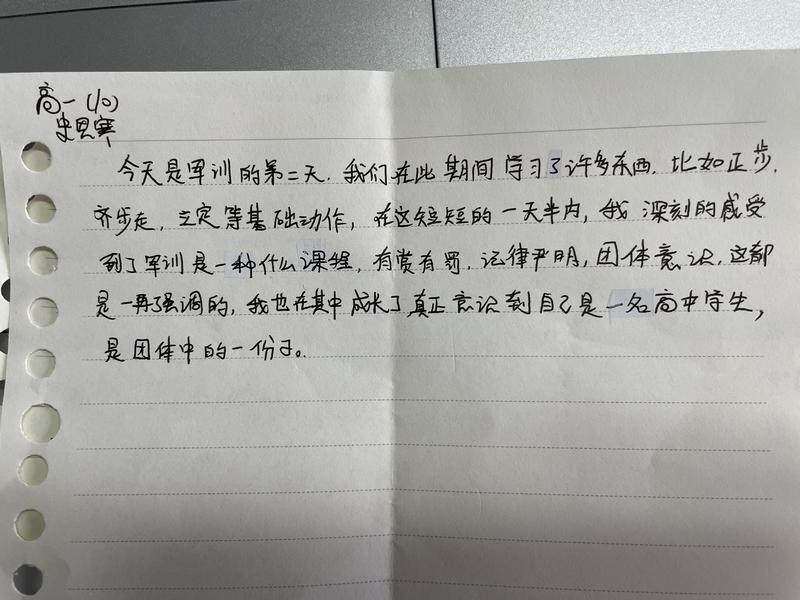 高一(10)
史思寒
今天是军训的第二天.我们在此期间学习了许多东西.比如正步.
齐步走,立定等基础动作,在这短短的一天半内,我深刻的感受
到了军训是一种什么课程,有赏有罚.记律严明,团体意识.这都
是一再强调的,我也在其中成长了,真正意识到自己是一名高中学生,
是团体中的一份子。